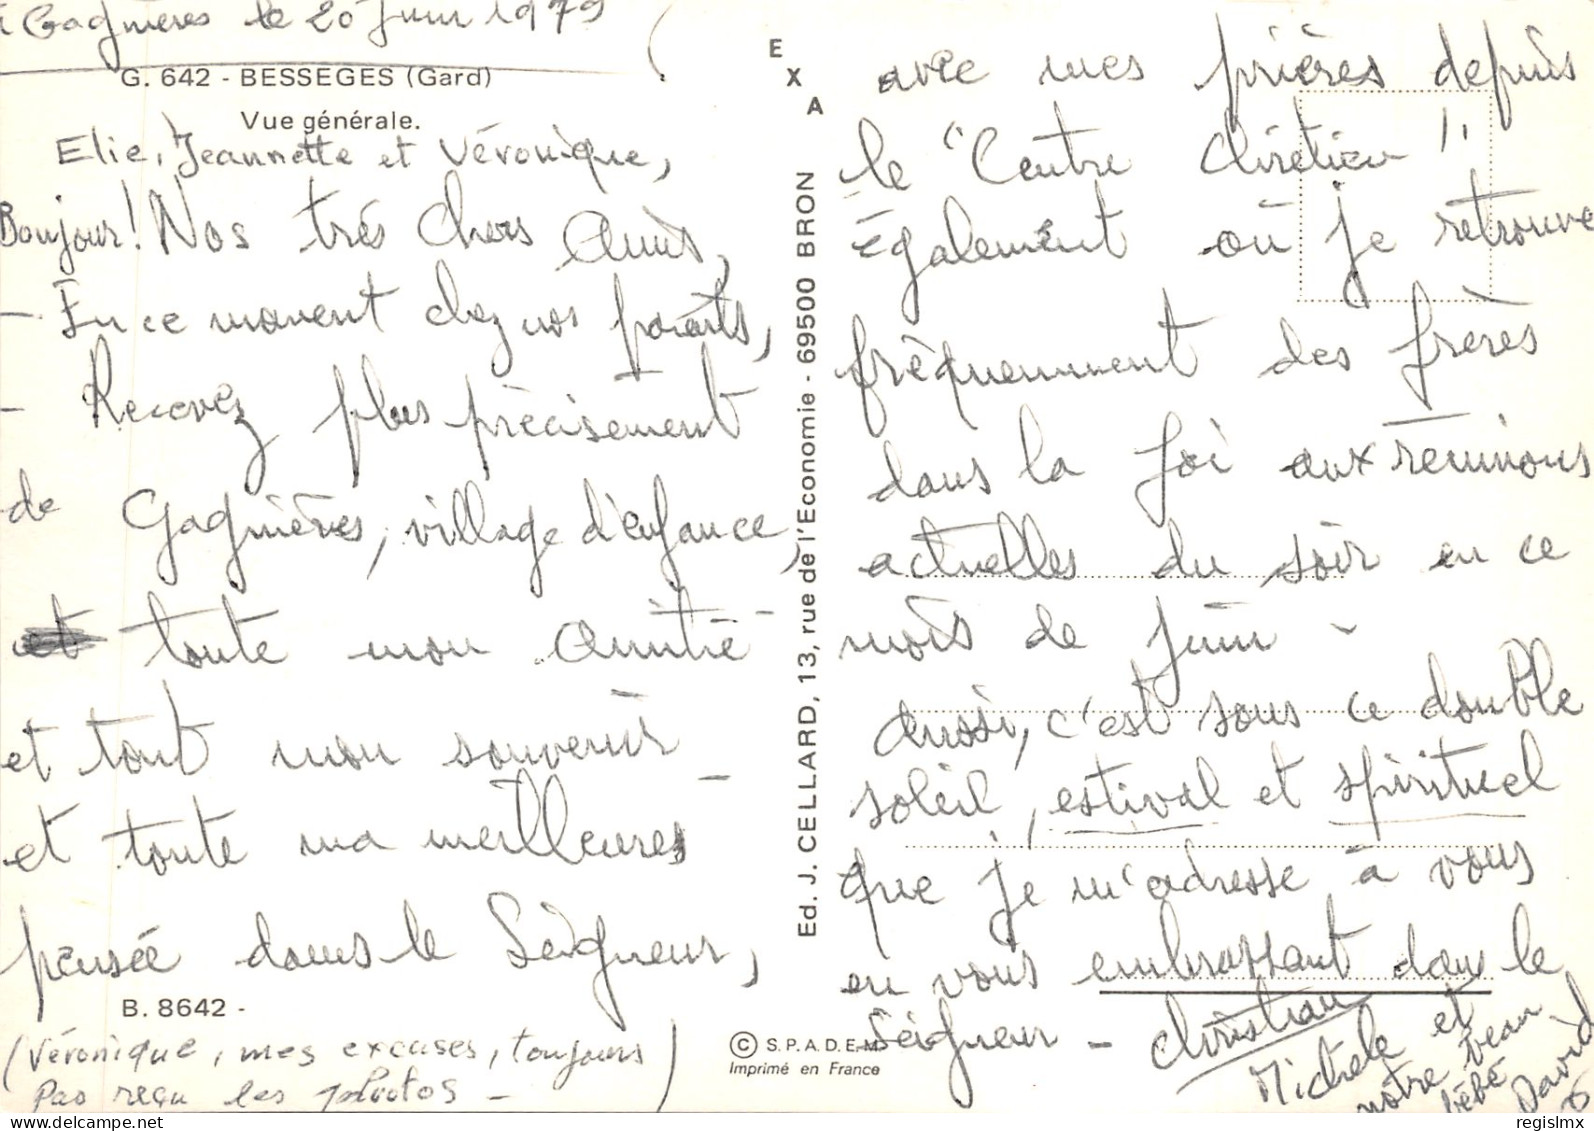 à Gagnières le 20 juin 1979
G. 642 - BESSEGES (Gard)
Vue générale.
Elie, Jeannette et Véronique,
Bonjour! Nos très chers Amis,
- En ce moment chez nos parents,
- Recevez plus précisement
de Gagnières, village d'enfance,
et toute mon amitié -
et tout mon souvenir -
et toute ma meilleures
pensée dans le Seigneur,
B. 8642 -
(Véronique, mes excuses, toujours
Pas reçu les photos -)
E X A
Ed. J. CELLARD, 13, rue de l'Economie - 69500 BRON
© S.P.A.D.E.M.
Imprimé en France
avec mes prières depuis
le "Centre Chrétien"
également où je retrouve
fréquemment des frères
dans la foi aux réunions
actuelles du soir en ce
mois de juin -
Aussi, c'est sous ce double
soleil, estival et spirituel
que je m'adresse à vous
en vous embrassant dans le
Seigneur - Christian
Michele et
notre beau
bébé David
regislmx